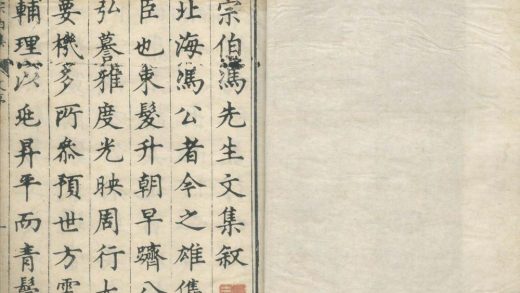 宗伯馮先生文集叙
北海馮公者今之雄儁
臣也束髮升朝早躋八
弘謩雅度光映周行大
要機多所叅預世方雲
輔理以延昇平而青鬂